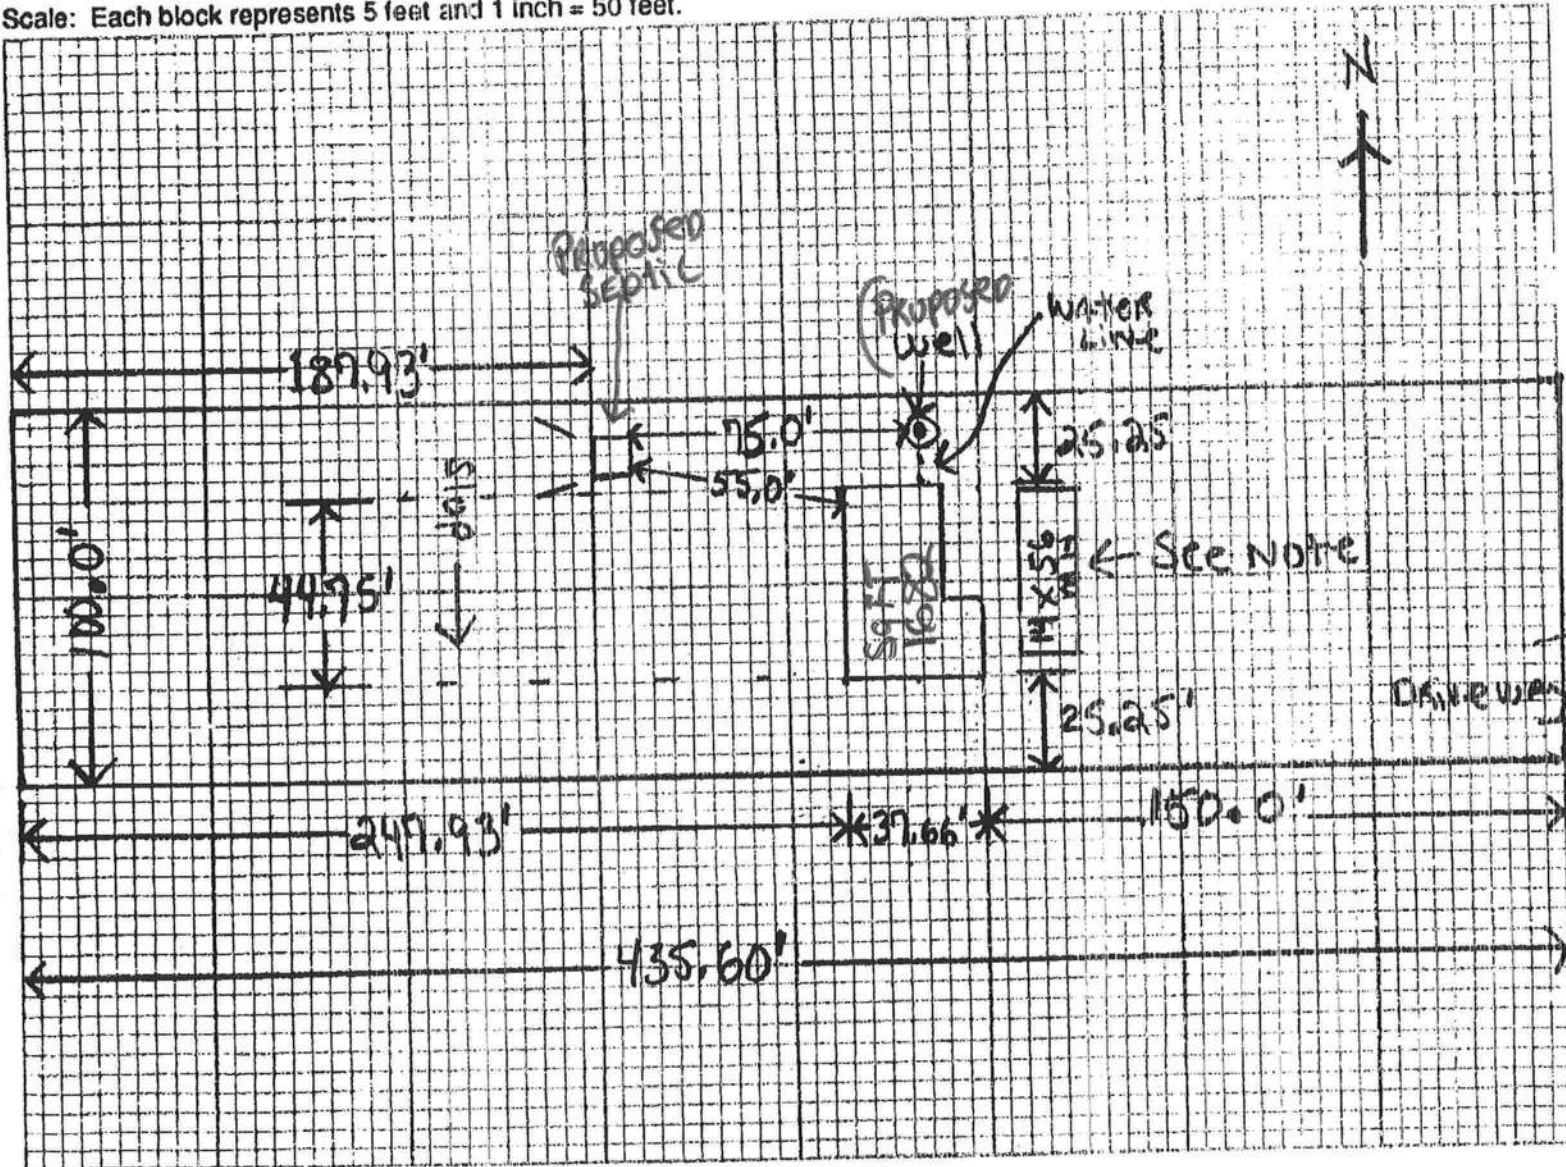 Scale: Each block represents 5 feet and 1 inch = 50 feet.
N
PROPOSED
SEPTIC
PROPOSED
well
WATER
LINE
187.93'
75.0'
25.25
55.0'
Slop
100.0'
44.75'
SQFT
1682
14 X 56
MH
See Note
25.25'
DRIVEWAY
247.93'
37.66'
150.0'
435.60'